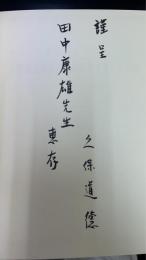 謹呈
田中康雄先生
惠存
久保道德